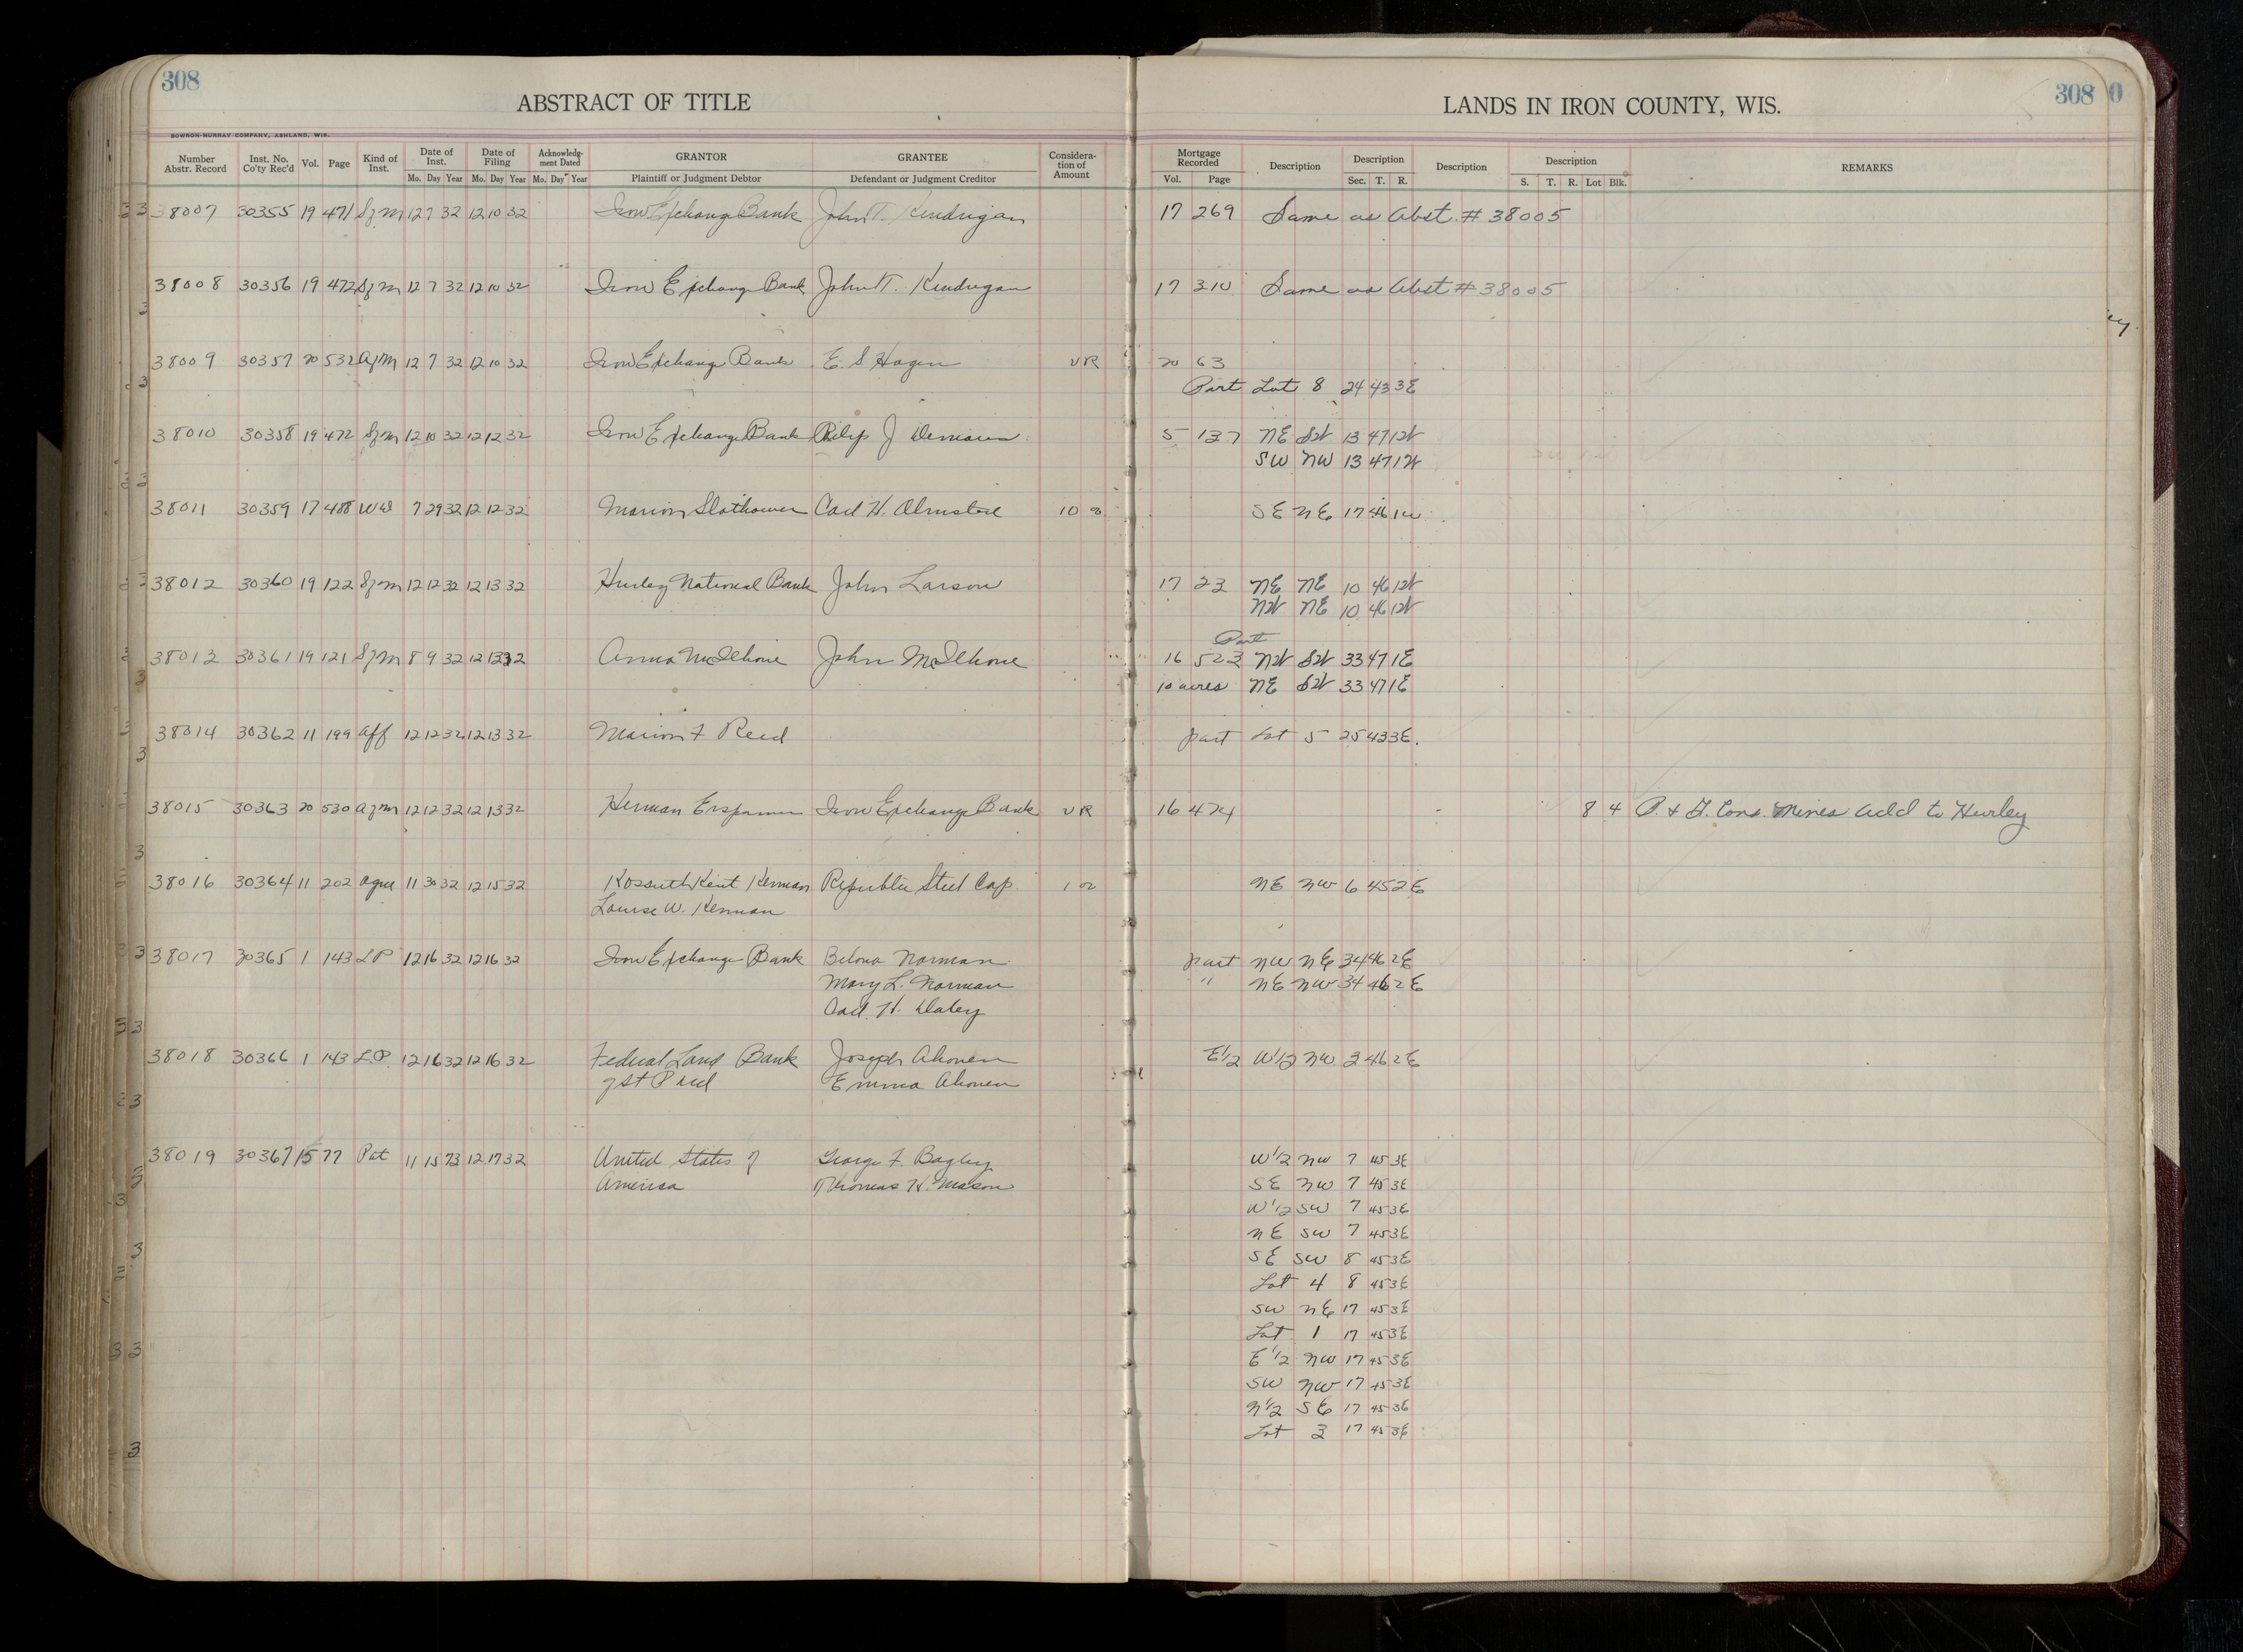 308
ABSTRACT OF TITLE
LANDS IN IRON COUNTY, WIS.
308
0
BOWRON-MURRAY COMPANY, ASHLAND, WIS.
Number Abstr. Record Inst. No. Co'ty Rec'd Vol. Page Kind of Inst. Date of Inst. Date of Filing Acknowledgment Dated GRANTOR GRANTEE Consideration of Amount Mortgage Recorded Description Description Description Description REMARKS
Mo. Day Year Mo. Day Year Mo. Day Year Plaintiff or Judgment Debtor Defendant or Judgment Creditor Vol. Page Sec. T. R. S. T. R. Lot Blk.
38007 30355 19 471 Szm 12 7 32 12 10 32 Iron Exchange Bank John T. Kendrigan 17 269 Same as Abst. # 38005
38008 30356 19 472 Szm 12 7 32 12 10 32 Iron Exchange Bank John T. Kendrigan 17 310 Same as Abst # 38005
38009 30357 20 532 Azm 12 7 32 12 10 32 Iron Exchange Bank E. S Hagen VR 20 63
Part Lot 8 24 43 3E
38010 30358 19 472 Szm 12 10 32 12 12 32 Iron Exchange Bank Philip J 5 137 NE SW 13 47 1W
SW NW 13 47 1W
38011 30359 17 488 WD 7 29 32 12 12 32 Marion Slathower Carl H. Olmsted 10 SE NE 17 46 1W
38012 30360 19 122 Szm 12 12 32 12 13 32 Hurley National Bank John Larson 17 23 NE NE 10 46 1W
NW NE 10 46 1W
Part
38013 30361 19 121 Szm 8 9 32 12 13 32 Anna McIlhone John McIlhone 16 523 NW SW 33 47 1E
10 acres NE SW 33 47 1E
38014 30362 11 199 Aff 12 12 32 12 13 32 Marion F Reed part Lot 5 25 43 3E.
38015 30363 20 530 Azm 12 12 32 12 13 32 Herman Erspamer Iron Exchange Bank VR 16 474 8 4 P. & G. Cons. Mines Add to Hurley
38016 30364 11 202 Agree 11 30 32 12 15 32 Kossuth Kent Kennan Republic Steel Corp. 1 NE NW 6 45 2E
Louise W. Kennan
38017 30365 1 143 LP 12 16 32 12 16 32 Iron Exchange Bank Norman part NW NE 34 46 2E
Mary L. Norman " NE NW 34 46 2E
Carl H. Daley
38018 30366 1 143 LP. 12 16 32 12 16 32 Federal Land Bank Joseph Ahonen E1/2 W1/2 NW 3 46 2E
of St Paul Emma Ahonen
38019 30367 15 77 Pat 11 15 73 12 17 32 United States of George F. Bagley W1/2 NW 7 45 3E
America Thomas H. Mason SE NW 7 45 3E
W1/2 SW 7 45 3E
NE SW 7 45 3E
SE SW 8 45 3E
Lot 4 8 45 3E
SW NE 17 45 3E
Lot 1 17 45 3E
E1/2 NW 17 45 3E
SW NW 17 45 3E
N1/2 SE 17 45 3E
Lot 3 17 45 3E